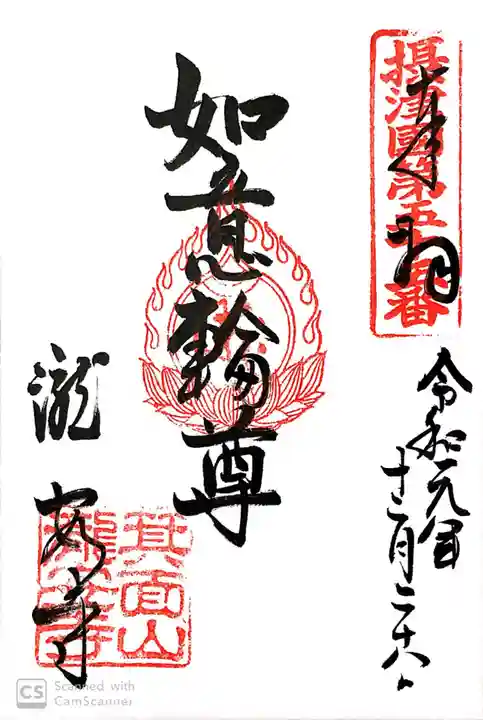 奉拝
摂津國第五十五番
令和元年
十二月二十八日
如意輪尊
瀧安寺
箕面山
瀧安寺
CS Scanned with
CamScanner